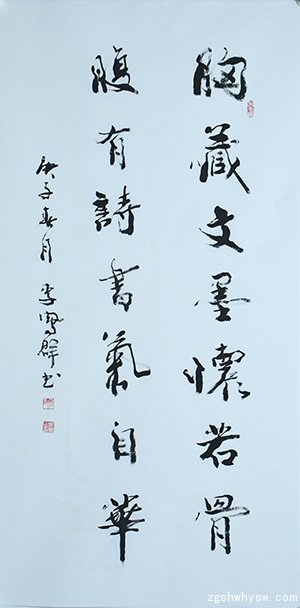 胸藏文墨懷若骨
腹有詩書氣自華
庚子春月 李鳳群书
zgshwhysw.com